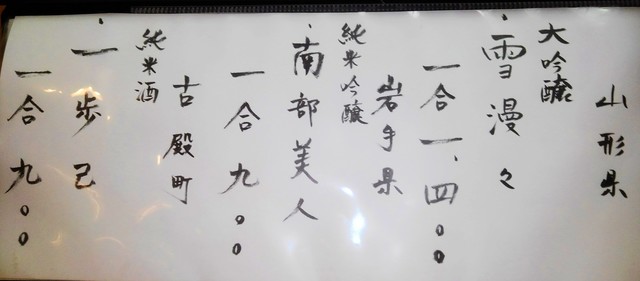 山形県
大吟醸
・雪漫々
一合 一、四〇〇
岩手県
純米吟醸
・南部美人
一合 九〇〇
古殿町
純米酒
・一歩己
一合 九〇〇